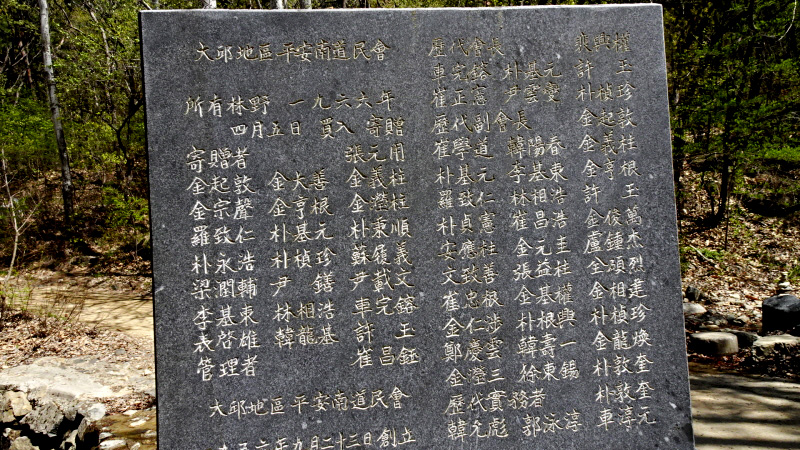 大邱地區平安南道民會
所有林野 一九六六年
四月五日 買入 寄贈
寄贈者 張元用
金起敦 金大善 金義柱
金宗聲 金亨根 金瀅柱
羅致仁 朴基元 朴秉順
朴永浩 朴楨珍 蘇履義
梁潤輔 尹 鐥 尹載文
李基東 林相浩 車完鎔
表啓雄 韓龍基 許 玉
管理者 崔昌鈺
大邱地區平安南道民會
九月二十三日創立
歷代會長
車完鎔 朴基元
崔正憲 尹雲燮
歷代副會長
崔學道 韓陽春
朴基元 李基東
羅致仁 林相浩
朴貞憲 崔昌浩
安應柱 金元圭
文致善 張益柱
崔忠根 金基權
金仁涉 朴根興
鄭慶雲 韓壽一
金瀅三 徐東錫
歷代實務者
韓允彪 郭泳淳
乘興權
許 玉
朴楨珍
金起敦
金義柱
金亨根
許 玉
金俊萬
盧鍾杰
金碩烈
朴相建
金楨珍
朴龍煥
朴敦奎
車淳元